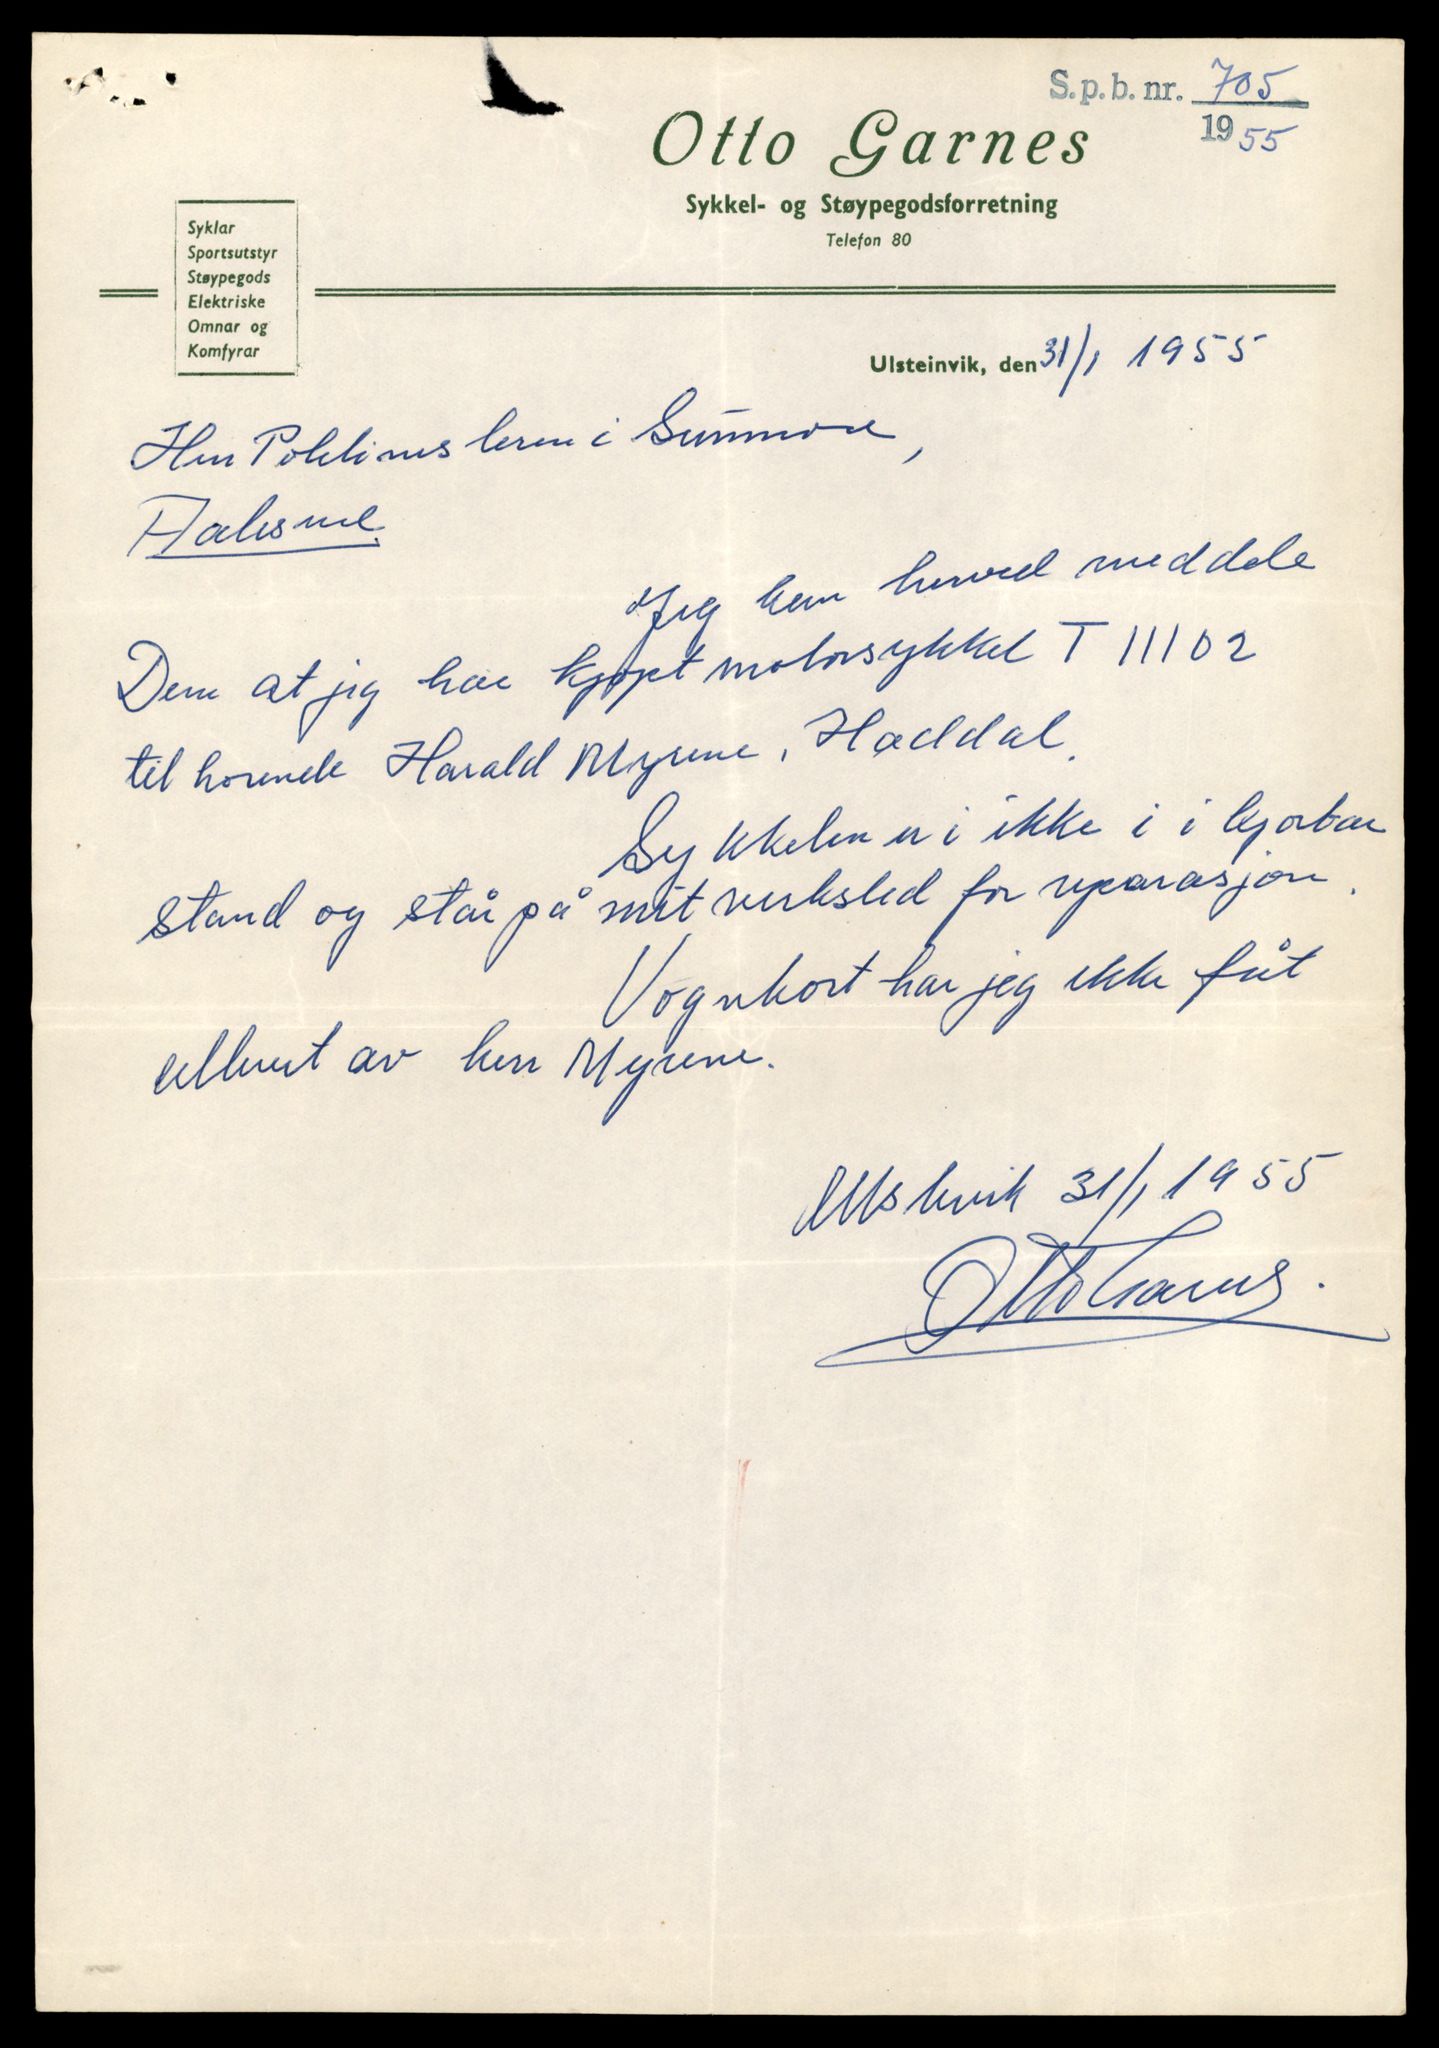 S.p.b. nr. 705
1955
Otto Garnes
Sykkel- og Støypegodsforretning
Telefon 80
Syklar
Sportsutstyr
Støypegods
Elektriske
Omnar og
Komfyrar
Ulsteinvik, den 31/1 1955
Herr Politimesteren i Sunnmøre,
Aalesund.
Jeg kan herved meddele
Dem at jeg har kjøpt motorsykkel T 11102
tilhorende Harald Myrene, Haddal.
Sykkelen er i ikke i i kjorbar
stand og står på mit verksted for reparasjon.
Vognkort har jeg ikke fåt
utlevert av herr Myrene.
Ulstenvik 31/1 1955
Otto Garnes.